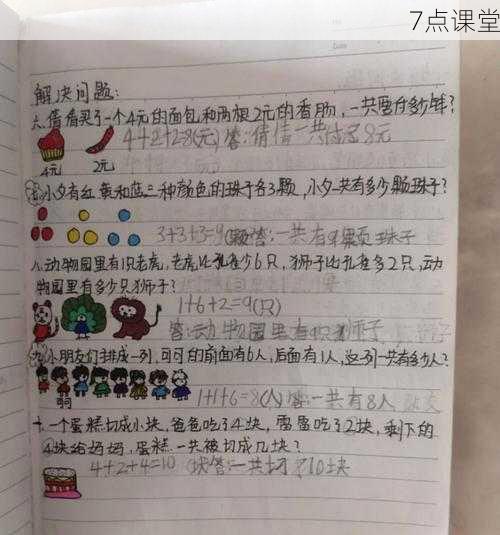 7点课堂
解决问题:
六、倩倩买了一个4元的面包和两根2元的香肠,一共要付多少钱?
4+2+2=8(元)答:倩倩一共付了8元
4元 2元
七、小夕有红、黄和蓝三种颜色的珠子各3颗,小夕一共有多少颗珠子?
3+3+3=9(颗)答:一共有9颗珠子
八、动物园里有1只老虎,老虎比孔雀少6只,狮子比孔雀多2只,动
物园里有多少只狮子?
1+6+2=9(只)
答:动物园里有9只狮子
九、小朋友们排成一列,可可的前面有6人,后面有1人,这一列一共有多少人?
1+1+6=8(人)答:一共有8人
十、一个蛋糕切成小块,爸爸吃了4块,雷雷吃了2块,剩下的
4块给妈妈,蛋糕一共被切成几块?
4+2+4=10(块)答:一共切了10块